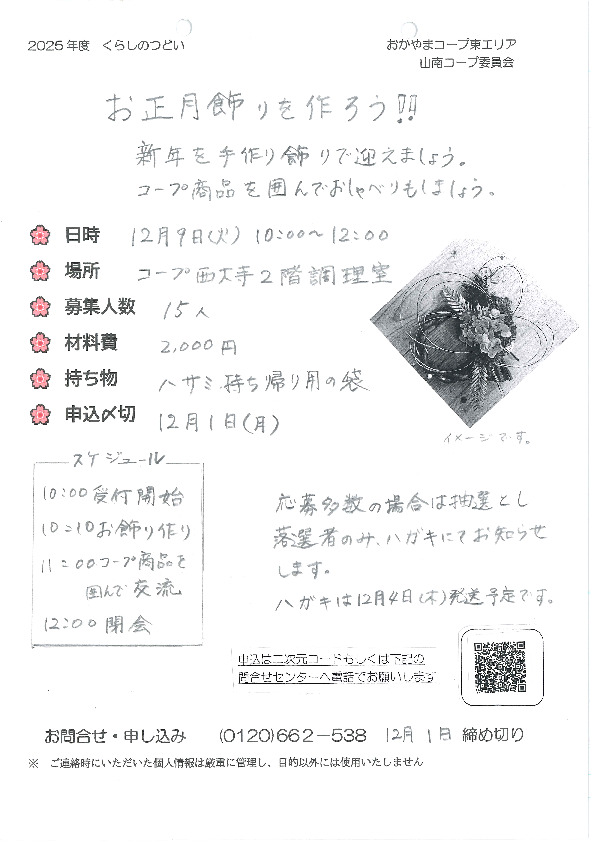 2025年度 くらしのつどい
おかやまコープ東エリア
山南コープ委員会
お正月飾りを作ろう!!
新年を手作り飾りで迎えましょう。
コープ商品を囲んでおしゃべりもしましょう。
日時 12月9日(火) 10:00~12:00
場所 コープ西大寺2階調理室
募集人数 15人
材料費 2,000円
持ち物 ハサミ.持ち帰り用の袋
申込〆切 12月1日(月)
イメージです。
スケジュール
10:00 受付開始
10:10 お飾り作り
11:00 コープ商品を
囲んで交流
12:00 閉会
応募多数の場合は抽選とし
落選者のみ、ハガキにてお知らせ
します。
ハガキは12月4日(木)発送予定です。
申込は二次元コードもしくは下記の
問合せセンターへ電話でお願いします
お問合せ・申し込み (0120)662-538 12月1日 締め切り
※ ご連絡時にいただいた個人情報は厳重に管理し、目的以外には使用いたしません